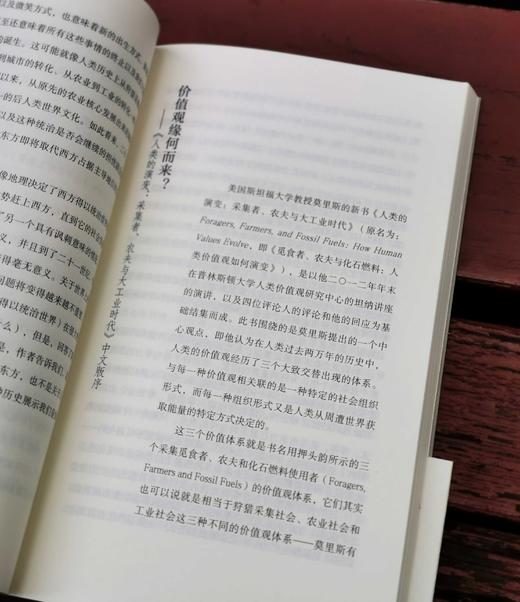 以及微笑方式，也意味着新的出生方式，
至还意味着所有这些事情的终业以及
的诞生。这可能就像人类历史上从狩猎
到城市的转化、从农业到工业的转化
以来，从原先的农业核心发展出来的
一的后人类世界文化。如此看来，二
以及这种统治是否会继续的担忧
东方即将取代西方占据主导地位
像地理决定了西方得以统治世
势赶上西方，直到它的社会
了另一个具有讽刺意味的
义，并且到了二十一世纪，
得毫无意义。关于世界
问题将变得越来越不重
得以统治世界）在很
什么）。但是，回答了
是，作者告诉我们，
东方，也不是关于
种历史展示我们
价值观缘何而来？
——《人类的演变：采集者、农夫与大工业时代》中文版序
美国斯坦福大学教授莫里斯的新书《人类的
演变：采集者、农夫与大工业时代》（原名为：
Foragers, Farmers, and Fossil Fuels: How Human
Values Evolve，即《觅食者、农夫与化石燃料：人
类价值观如何演变》），是以他二〇一二年年末
在普林斯顿大学人类价值观研究中心的坦纳讲座
的演讲，以及四位评论人的评论和他的回应为基
础结集而成。此书围绕的是莫里斯提出的一个中
心观点，即他认为在人类过去两万年的历史中，
人类的价值观经历了三个大致交替出现的体系。
与每一种价值观相关联的是一种特定的社会组织
形式，而每一种组织形式又是人类从周遭世界获
取能量的特定方式决定的。
这三个价值体系就是书名用押头韵所示的三
个采集觅食者、农夫和化石燃料使用者（Foragers,
Farmers and Fossil Fuels）的价值观体系，它们其实
也可以说就是相当于狩猎采集社会、农业社会和
工业社会这三种不同的价值观体系——莫里斯有